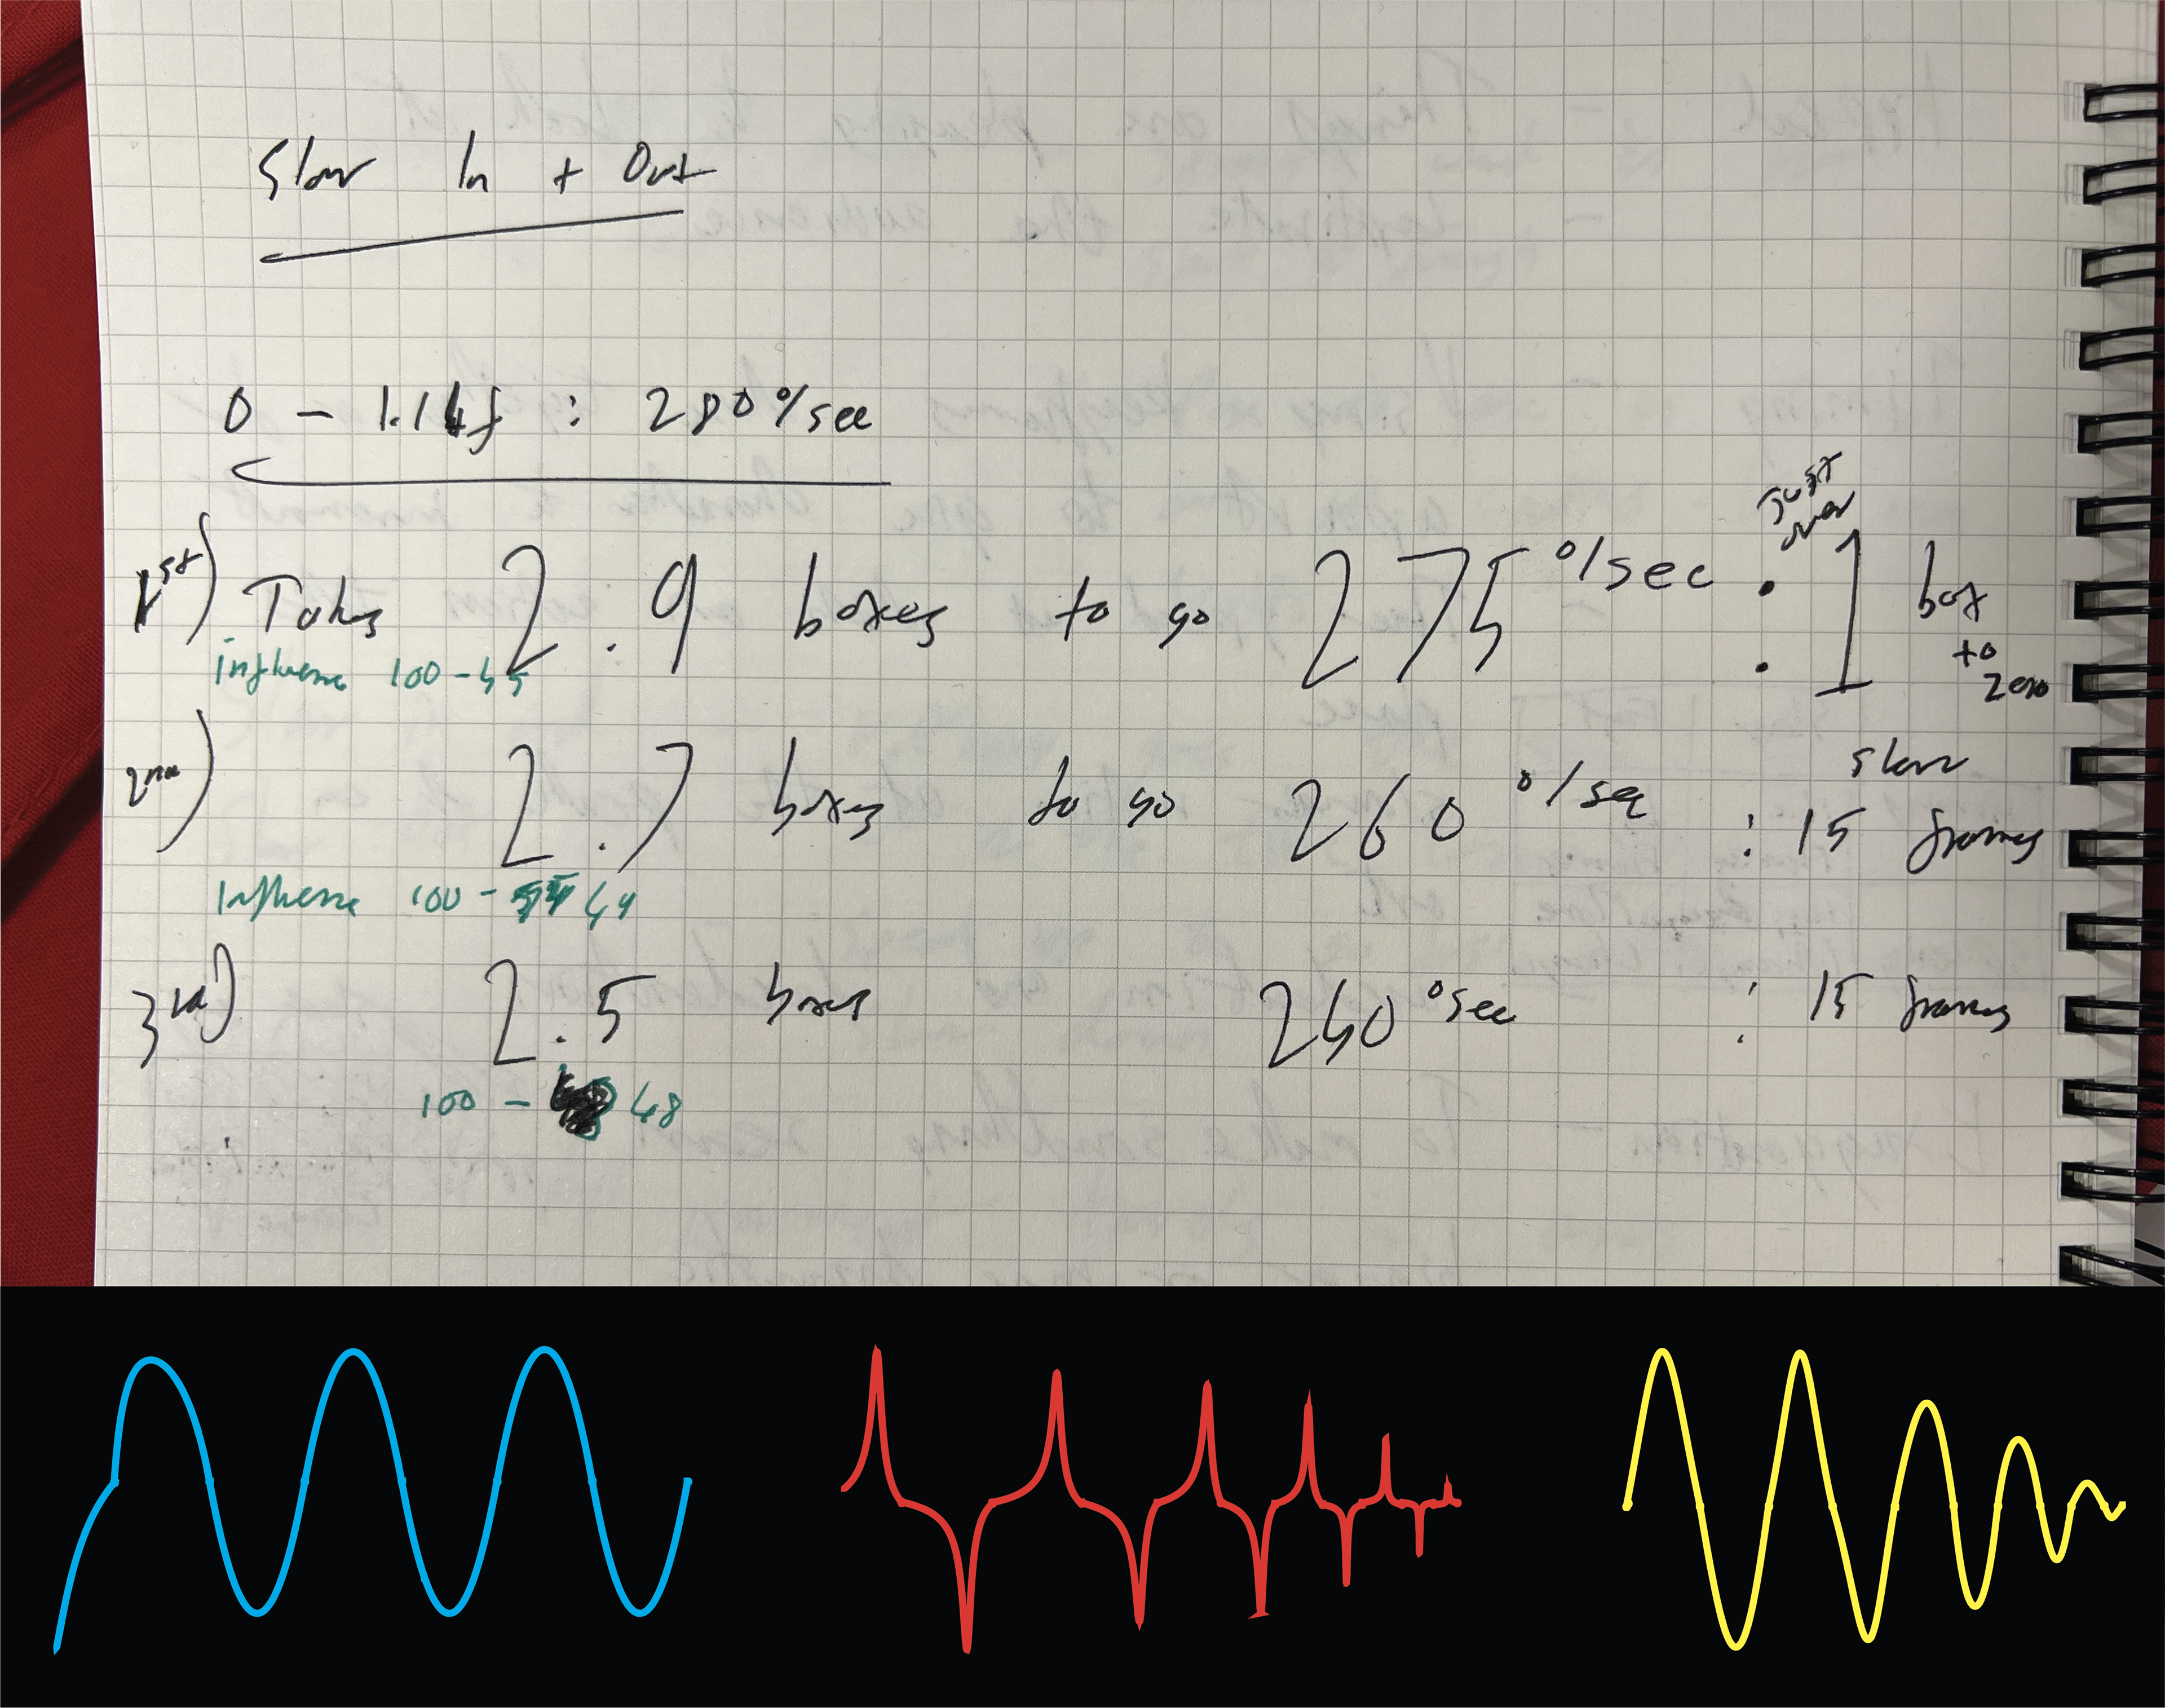 Slow In + Out
0 - 1.14f : 280°/sec
1st) Takes 2.9 boxes to go 275°/sec : Just over 1 box to zero
influence 100 - 45
2nd) 2.7 boxes to go 260°/sec : slow 15 frames
Influence 100 - 44
3rd) 2.5 boxes 240°sec : 15 frames
100 - 48